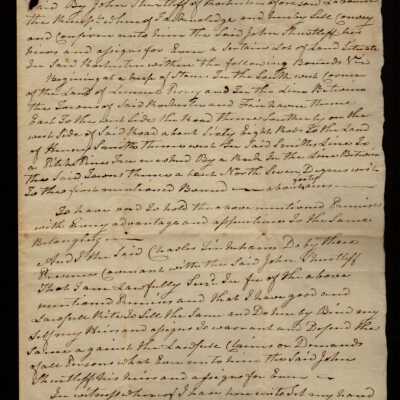 Said By John Shurtliff of Rochester aforesaid Labourer
the Receipt thereof I acknowledge and hereby Sell Convey
and Confirm unto him the Said John Shurtliff his
heirs and assigns for Ever a Sertain Lot of Land Situate
In Said Rochester within the following Bounds Viz
Begining at a heap of Stone In the South west Corner
of the Land of Perry and In the Line Between
the Towns of Said Rochester and Fairhaven thence
East To the west Side the Road thence Southerly on the
west Side of Said Road about Sixty Eight Rods To the Land
of Henry Smiths thence west the Said Smiths Line To
a Pitch Pine Tree marked By a Rock In the Line Between
the Said Towns thence a bout North Seven Degrees west
To the first mentioned Bound about forty
To have and To hold the above mentioned Premises
with Every advantage and appurtince To the Same
Belonging
And I the Said Charles Sturtevant Do by these
Presence Covenant with the Said John Shurtliff
That I am Lawfully Seiz'd In fee of the above
mentioned Premises and that I have good and
Lawfull Rite To Sell the Same and Do here by Bind my
Self my Heirs and assigns to warrant and Defend the
Same against the Lawfull Claims or Demands
of all Persons what Ever unto him the Said John
Shurtliff his heirs and assigns for Ever
In witness whereof I have hereunto Set my hand